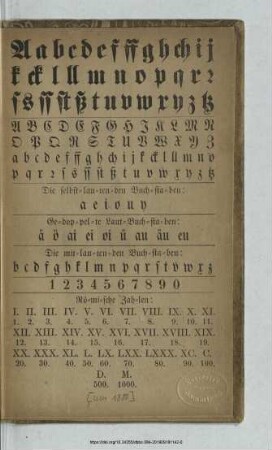 A a b c d e f ff g h ch i j
k ck l ll m n o p q r ꝛ
ſ s ſſ ſt ß t u v w x y z tz
A B C D E F G H J K L M N
O P Q R S T U V W X Y Z
a b c d e f ff g h ch i j k ck l ll m n o
p q r ꝛ ſ s ſſ ſt ß t u v w x y z tz
Die ſelbſt-lau-ten-den Buch-ſta-ben:
a e i o u y
Ge-dop-pel-te Laut-Buch-ſta-ben:
ä ö ai ei oi ü au äu eu
Die mit-lau-ten-den Buch-ſta-ben:
b c d f g h k l m n p q r ſ t v w x z
1 2 3 4 5 6 7 8 9 0
Rö-mi-ſche Zah-len:
I. II. III. IV. V. VI. VII. VIII. IX. X. XI.
1. 2. 3. 4. 5. 6. 7. 8. 9. 10. 11.
XII. XIII. XIV. XV. XVI. XVII. XVIII. XIX.
12. 13. 14. 15. 16. 17. 18. 19.
XX. XXX. XL. L. LX. LXX. LXXX. XC. C.
20. 30. 40. 50. 60. 70. 80. 90. 100.
D. M.
500. 1000.